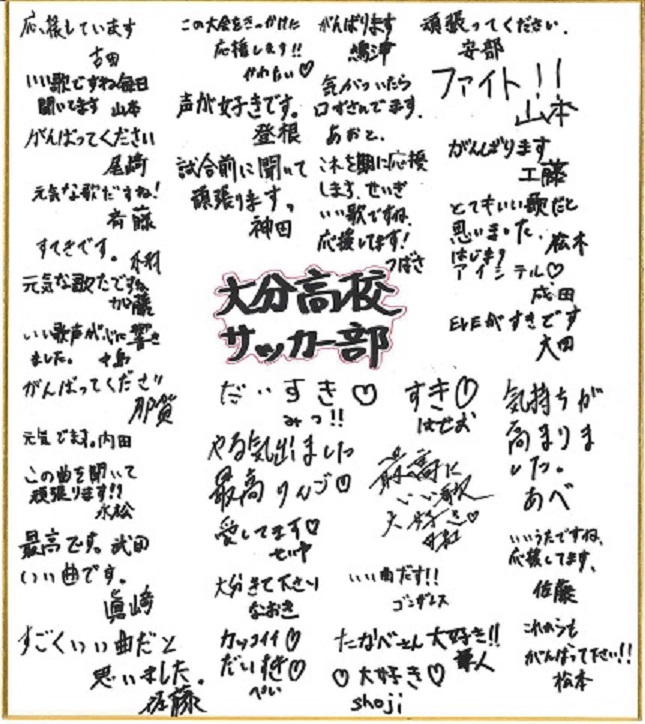 応援しています
吉田
いい歌ですね毎日
聞いてます 山本
がんばってください
尾崎
元気な歌だすね!
斉藤
すてきです。木村
元気な歌たですね
加藤
いい歌声が心に響き
ました。中島
がんばってくださリ
那賀
元気でます。内田
この曲を聞いて
頑張ります!!
永松
最高です。武田
いい曲です。
眞崎
すごくいい曲だと
思いました。
佐藤
この大会をきっかけに
応援します!!
やわたい♡
声が好きです。
登根
試合前に聞いて
頑張ります。
神田
がんばります
嶋津
気がついたら
口ずさんでます。
あおと、
これを期に応援
します。せいぎ
いい歌ですね。
応援してます!
つばさ
頑張ってください。
安部
ファイト!!
山本
がんばります
工藤
とてもいい歌だと
思いました。松木
はじま?
アイシテル♡
成田
ELEがすきです
大田
大分高校
サッカー部
だいすき♡
みつ!!
やる気出ました
最高りんご♡
愛してます♡
大分きて下さい
なおき
カッコイイ♡
だいすき♡
ぺい
すき♡
はせお
最高に
いい歌
大好き♡
いい曲だす!!
ゴンザレス
たなべさん大好き!!
隼人
♡大好き♡
shoji
気持ちが
高まりま
した。
あべ
いいうたですね、
応援してます、
佐藤
これからも
がんばって下さい!!
松本